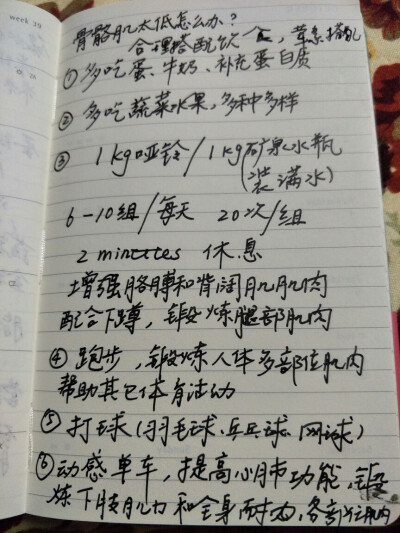 week 39
骨骼肌太低怎么办?
合理搭配饮食, 荤素搭配
① 多吃蛋、牛奶、补充蛋白质
② 多吃蔬菜水果, 多种多样
③ 1kg哑铃/1kg矿泉水瓶
(装满水)
6-10组/每天 20次/组
2 minutes 休息
增强胳膊和背阔肌肌肉
配合下蹲, 锻炼腿部肌肉
④ 跑步, 锻炼人体多部位肌肉
帮助其它体育活动
⑤ 打球(羽毛球、乒乓球、网球)
⑥ 动感单车, 提高心肺功能, 锻
炼下肢肌力和全身耐力, 各部位肌肉